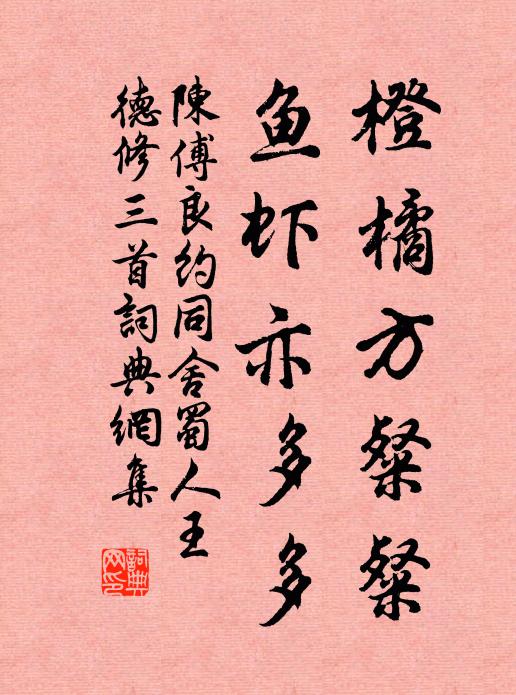 橙橘方粲粲
鱼虾亦多多
陳傅良約同舍蜀人王
德修三首詞典網集
詞典
网印